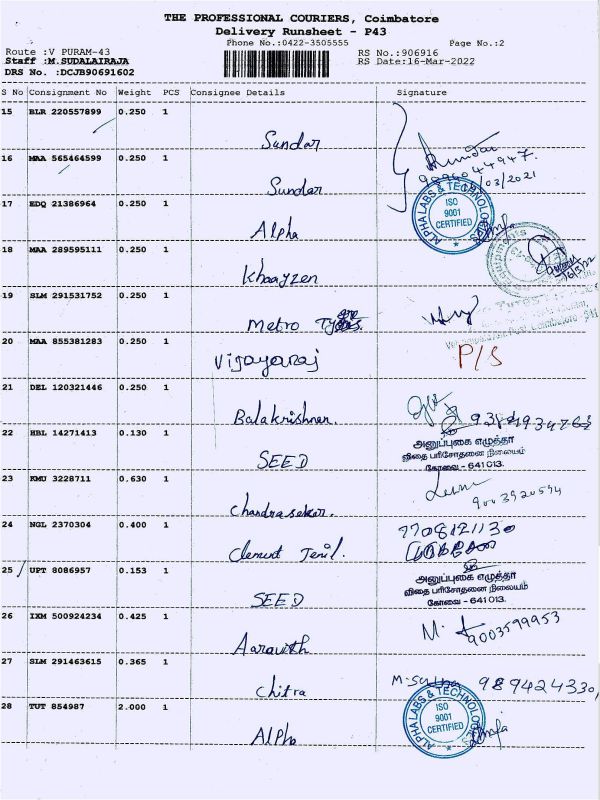 THE PROFESSIONAL COURIERS, Coimbatore
Delivery Runsheet - P43
Phone No.:0422-3505555
Page No.:2
Route :V PURAM-43
RS No.:906916
Staff :M.SUDALAIRAJA
RS Date:16-Mar-2022
DRS No. :DCJB90691602
S No Consignment No Weight PCS Consignee Details Signature
15 BLR 220557899 0.250 1
Sundar
9894044947.
16 MAA 565464599 0.250 1
Sundar
/03/2021
17 EDQ 21386964 0.250 1
Alpha
ALPHA LABS & TECHNOLOGIES
ISO
9001
CERTIFIED
18 MAA 289595111 0.250 1
Khaayzen
16/3/22
19 SLM 291531752 0.250 1
Metro Tyres.
20 MAA 855381283 0.250 1
Vijayaraj
P/S
21 DEL 120321446 0.250 1
Balakrishnan.
22 HBL 14271413 0.130 1
SEED
அனுப்புகை எழுத்தர்
விதை பரிசோதனை நிலையம்
கோவை - 641 013.
23 KMU 3228711 0.630 1
Chandrasekar.
9003920594
24 NGL 2370304 0.400 1
Clement Jenil.
7708121130
25 UPT 8086957 0.153 1
SEED
அனுப்புகை எழுத்தர்
விதை பரிசோதனை நிலையம்
கோவை - 641 013.
26 IXM 500924234 0.425 1
Aaravith
M.
9003599953
27 SLM 291463615 0.365 1
Chitra
M. Sudha 989424330,
28 TUT 854987 2.000 1
Alpha
ALPHA LABS & TECHNOLOGIES
ISO
9001
CERTIFIED